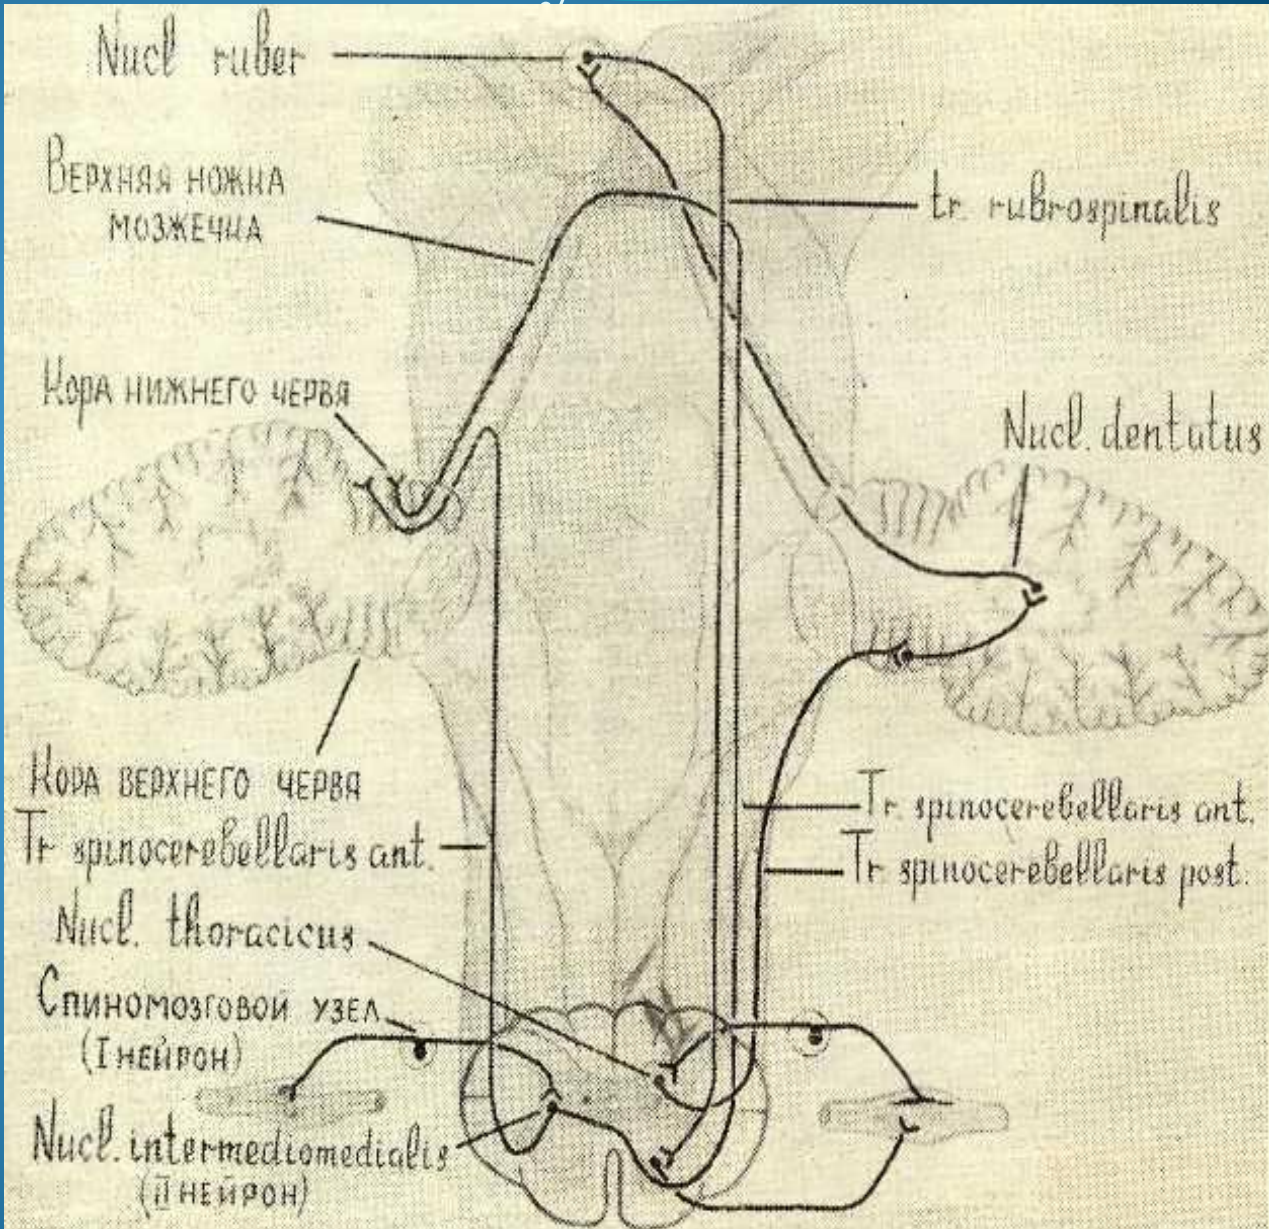 Nucl ruber
Верхняя ножка
мозжечка
tr. rubrospinalis
Кора нижнего червя
Nucl. dentatus
Кора верхнего червя
Tr spinocerebellaris ant.
Tr. spinocerebellaris ant.
Tr. spinocerebellaris post.
Nucl. thoracicus
Спиномозговой узел
(I нейрон)
Nucl. intermediomedialis
(II нейрон)